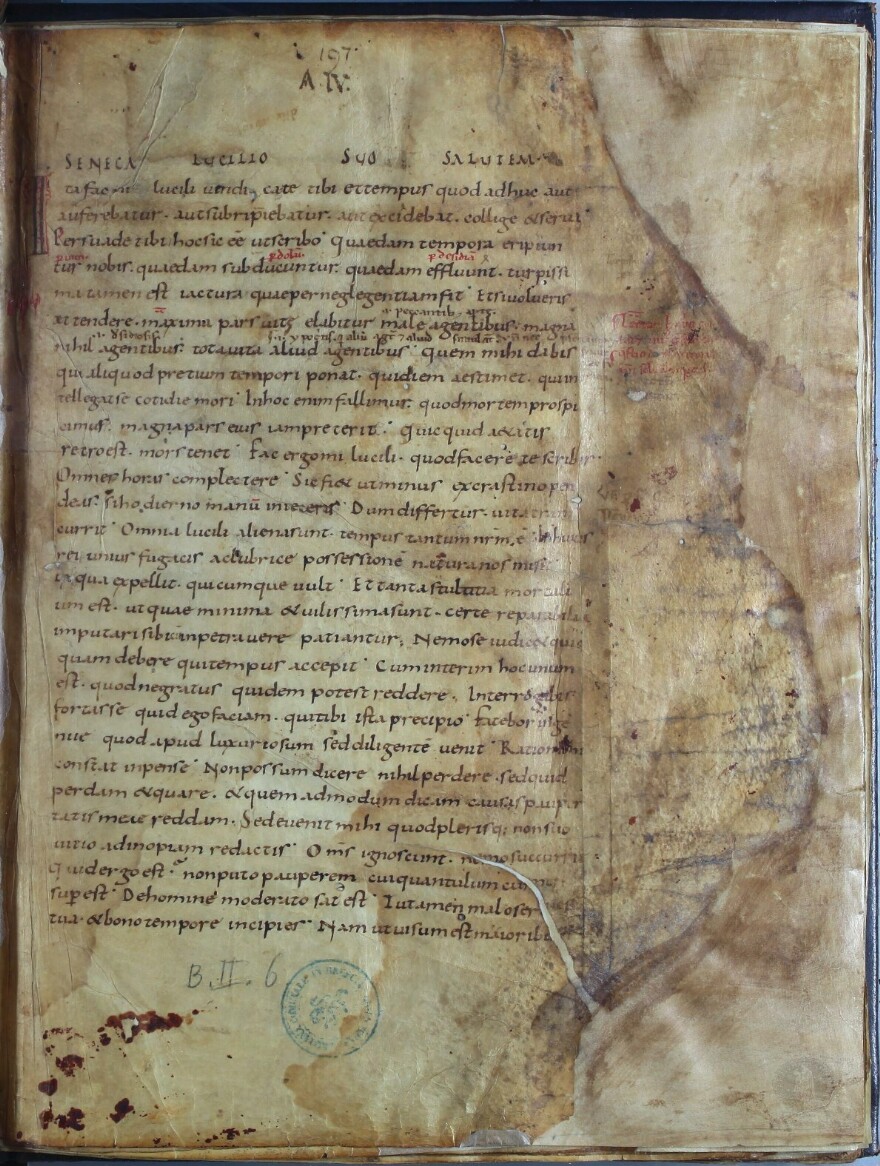 197
A. IV.
SENECA LUCILIO SUO SALUTEM
Ita fac mi lucili vendica te tibi et tempus quod adhuc aut
auferebatur. aut subripiebatur. aut excidebat. collige & serva
Persuade tibi hoc sic eē ut scribo quaedam tempora eripiun
tur nobis. quaedam subducuntur. quaedam effluunt. turpissi
ma tamen est iactura quae per neglegentiam fit Et si volueris
attendere. maxima pars vitę elabitur male agentibus. magna
nihil agentibus. tota vita aliud agentibus quem mihi dabis
qui aliquod pretium tempori ponat. qui diem aestimet. qui in
tellegat se cotidie mori In hoc enim fallimur. quod mortem prospi
cimus. magna pars eius iam preterit. Quicquid aetatis
retro est. mors tenet Fac ergo mi lucili. quod facere te scribis
Omnes horas complectere Sic fi& ut minus ex crastino pen
deas si hodierno manū inieceris Dum differtur. vita tran
currit Omnia lucili aliena sunt. tempus tantum nrm ē In huius
rei unius fugacis ac lubrice possessionē natura nos misit
ex qua expellit. quicumque vult Et tanta stultitia mortali
um est. ut quae minima & vilissima sunt. certe reparabilia
imputari sibi cum inpetravere patiantur; Nemo se iudic& quic
quam debere qui tempus accepit Cum interim hoc unum
est. quod ne gratus quidem potest reddere. Interrogabis
fortasse quid ego faciam. qui tibi ista precipio Fatebor inge
nue quod apud luxuriosum sed diligentē venit Ratio mihi
constat inpense Non possum dicere nihil perdere. sed quid
perdam & quare. & quem admodum dicam causas pauper
tatis meae reddam. Sed evenit mihi quod plerisq; non suo
vitio ad inopiam redactis Omīs ignoscunt. nemo succurrit
Quid ergo est non puto pauperem cui quantulumcum
sup est De homine moderato sat est Tu tamen malo ser
tua. & bono tempore incipies Nam ut visum est maiorib
B.II.6